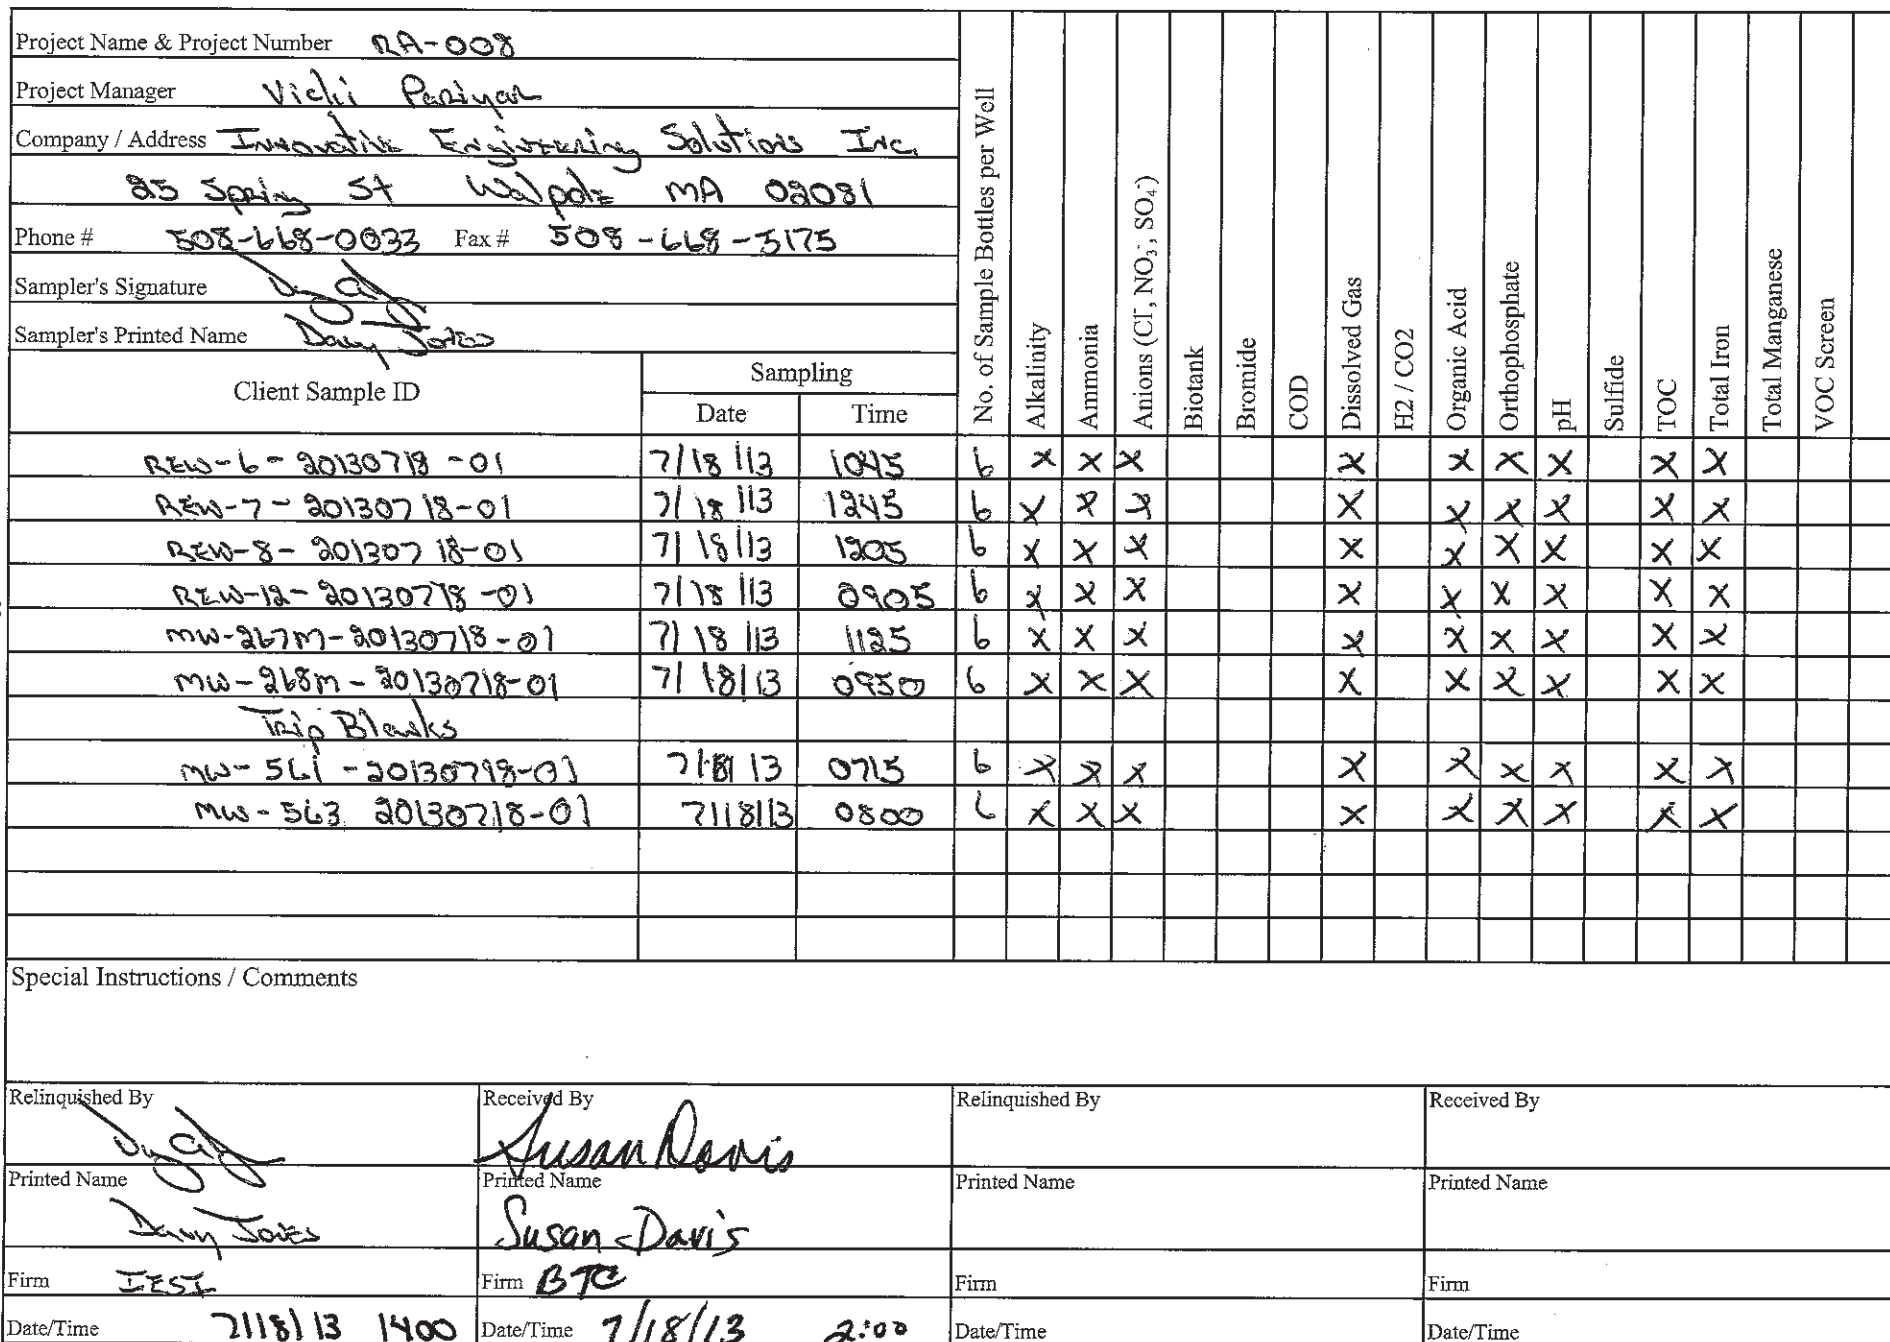 Project Name & Project Number RA-008
Project Manager Vicki Pariyar
Company / Address Innovative Engineering Solutions Inc.
25 Spring St Walpole MA 02081
Phone # 508-668-0033 Fax # 508-668-5175
Sampler's Signature
Sampler's Printed Name Davy Jones
Client Sample ID
Sampling
Date Time
No. of Sample Bottles per Well
Alkalinity
Ammonia
Anions (Cl⁻, NO₃⁻, SO₄⁻)
Biotank
Bromide
COD
Dissolved Gas
H2 / CO2
Organic Acid
Orthophosphate
pH
Sulfide
TOC
Total Iron
Total Manganese
VOC Screen
REW-6-20130718-01 7/18/13 1045 6 X X X X X X X X X
REW-7-20130718-01 7/18/13 1245 6 X X X X X X X X X
REW-8-20130718-01 7/18/13 1205 6 X X X X X X X X X
REW-12-20130718-01 7/18/13 0905 6 X X X X X X X X X
MW-267M-20130718-01 7/18/13 1125 6 X X X X X X X X X
MW-268M-20130718-01 7/18/13 0950 6 X X X X X X X X X
Trip Blanks
MW-561-20130718-01 7/18/13 0715 6 X X X X X X X X X
MW-563 20130718-01 7/18/13 0800 6 X X X X X X X X X
Special Instructions / Comments
Relinquished By Received By Relinquished By Received By
Susan Davis
Printed Name Printed Name Printed Name Printed Name
Davy Jones Susan Davis
Firm IESI Firm BTC Firm Firm
Date/Time 7/18/13 1400 Date/Time 7/18/13 2:00 Date/Time Date/Time